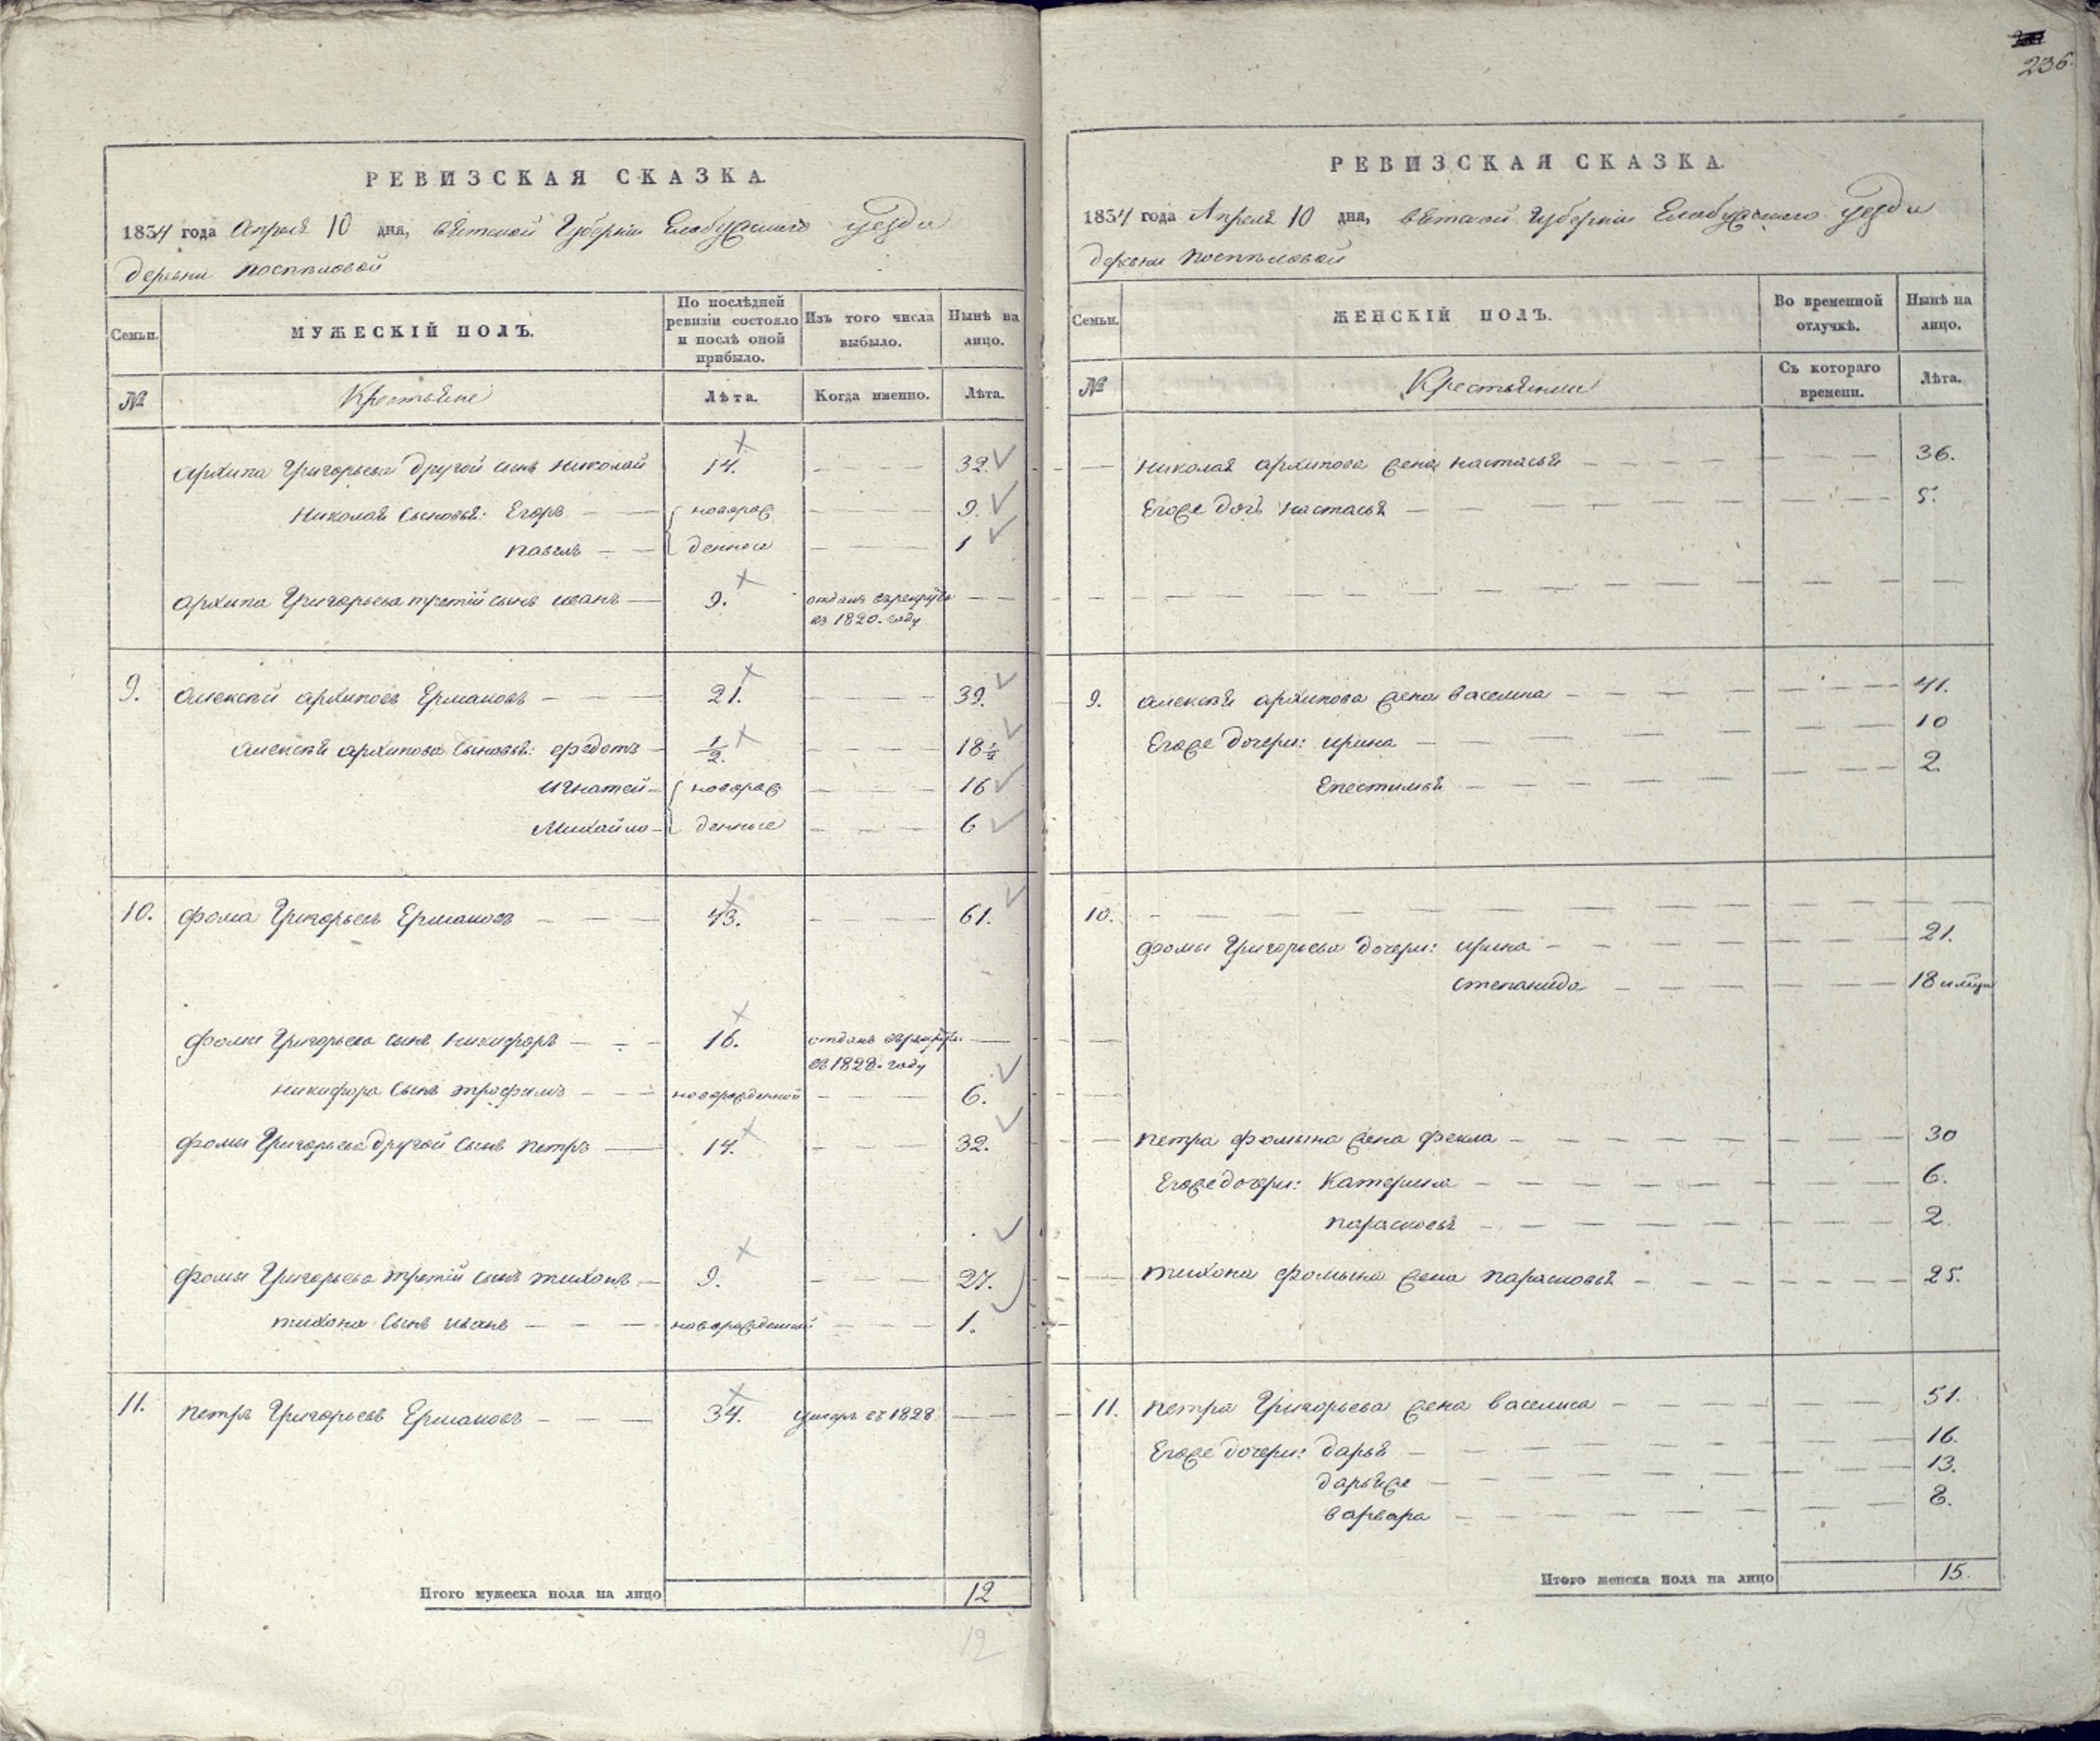 236.
РЕВИЗСКАЯ СКАЗКА.
1834 года Апреля 10 дня, Вятской Губернии Елабужскаго уезда
деревни Поспѣловой
Семьи.
МУЖЕСКІЙ ПОЛЪ.
По послѣдней ревизіи состояло и послѣ оной прибыло.
Изъ того числа выбыло.
Нынѣ на лицо.
№
Крестьяне
Лѣта.
Когда именно.
Лѣта.
Архипа Григорьева другой сынъ Николай — 14. — 32.
Николая сыновья: Егоръ — новорож — 9.
Павелъ — денные — 1
Архипа Григорьева третій сынъ Иванъ — 9. отданъ въ рекруты
въ 1820. году
9. Алексѣй Архиповъ Ермаковъ — 21. — 39.
Алексѣя Архипова сыновья: Федотъ — 1/2. — 18 1/2
Игнатей — новорож — 16
Михайло — денные — 6
10. Фома Григорьевъ Ермаковъ — 43. — 61.
Фомы Григорьева сынъ Никифоръ — 16. отданъ въ рекруты.
въ 1828. году
Никифора сынъ Трофимъ — новорожденной — 6.
Фомы Григорьева другой сынъ Петръ — 14. — 32.
Фомы Григорьева третій сынъ Тихонъ — 9. — 27.
Тихона сынъ Иванъ — новорожденный — 1.
11. Петръ Григорьевъ Ермаковъ — 34. умеръ въ 1828
Итого мужеска пола на лицо 12
12
РЕВИЗСКАЯ СКАЗКА.
1834 года Апреля 10 дня, Вятской Губернии Елабужскаго уезда
деревни Поспѣловой
Семьи.
ЖЕНСКІЙ ПОЛЪ.
Во временной отлучкѣ.
Нынѣ на лицо.
№
Крестьянки
Съ котораго времени.
Лѣта.
Николая Архипова жена Настасья — 36.
Егоже дочь Настасья — 5.
9. Алексѣя Архипова жена Василиса — 41.
Егоже дочери: Ирина — 10
Епестимья — 2.
10.
Фомы Григорьева дочери: Ирина — 21.
Степанида — 18
Петра Фомына жена Фекла — 30
Егоже дочери: Катерина — 6.
Парасковья — 2.
Тихона Фомына жена Парасковья — 25.
11. Петра Григорьева жена Василиса — 51.
Егоже дочери: Дарья — 16.
Дарьяже — 13.
Варвара — 8.
Итого женска пола на лицо 15.